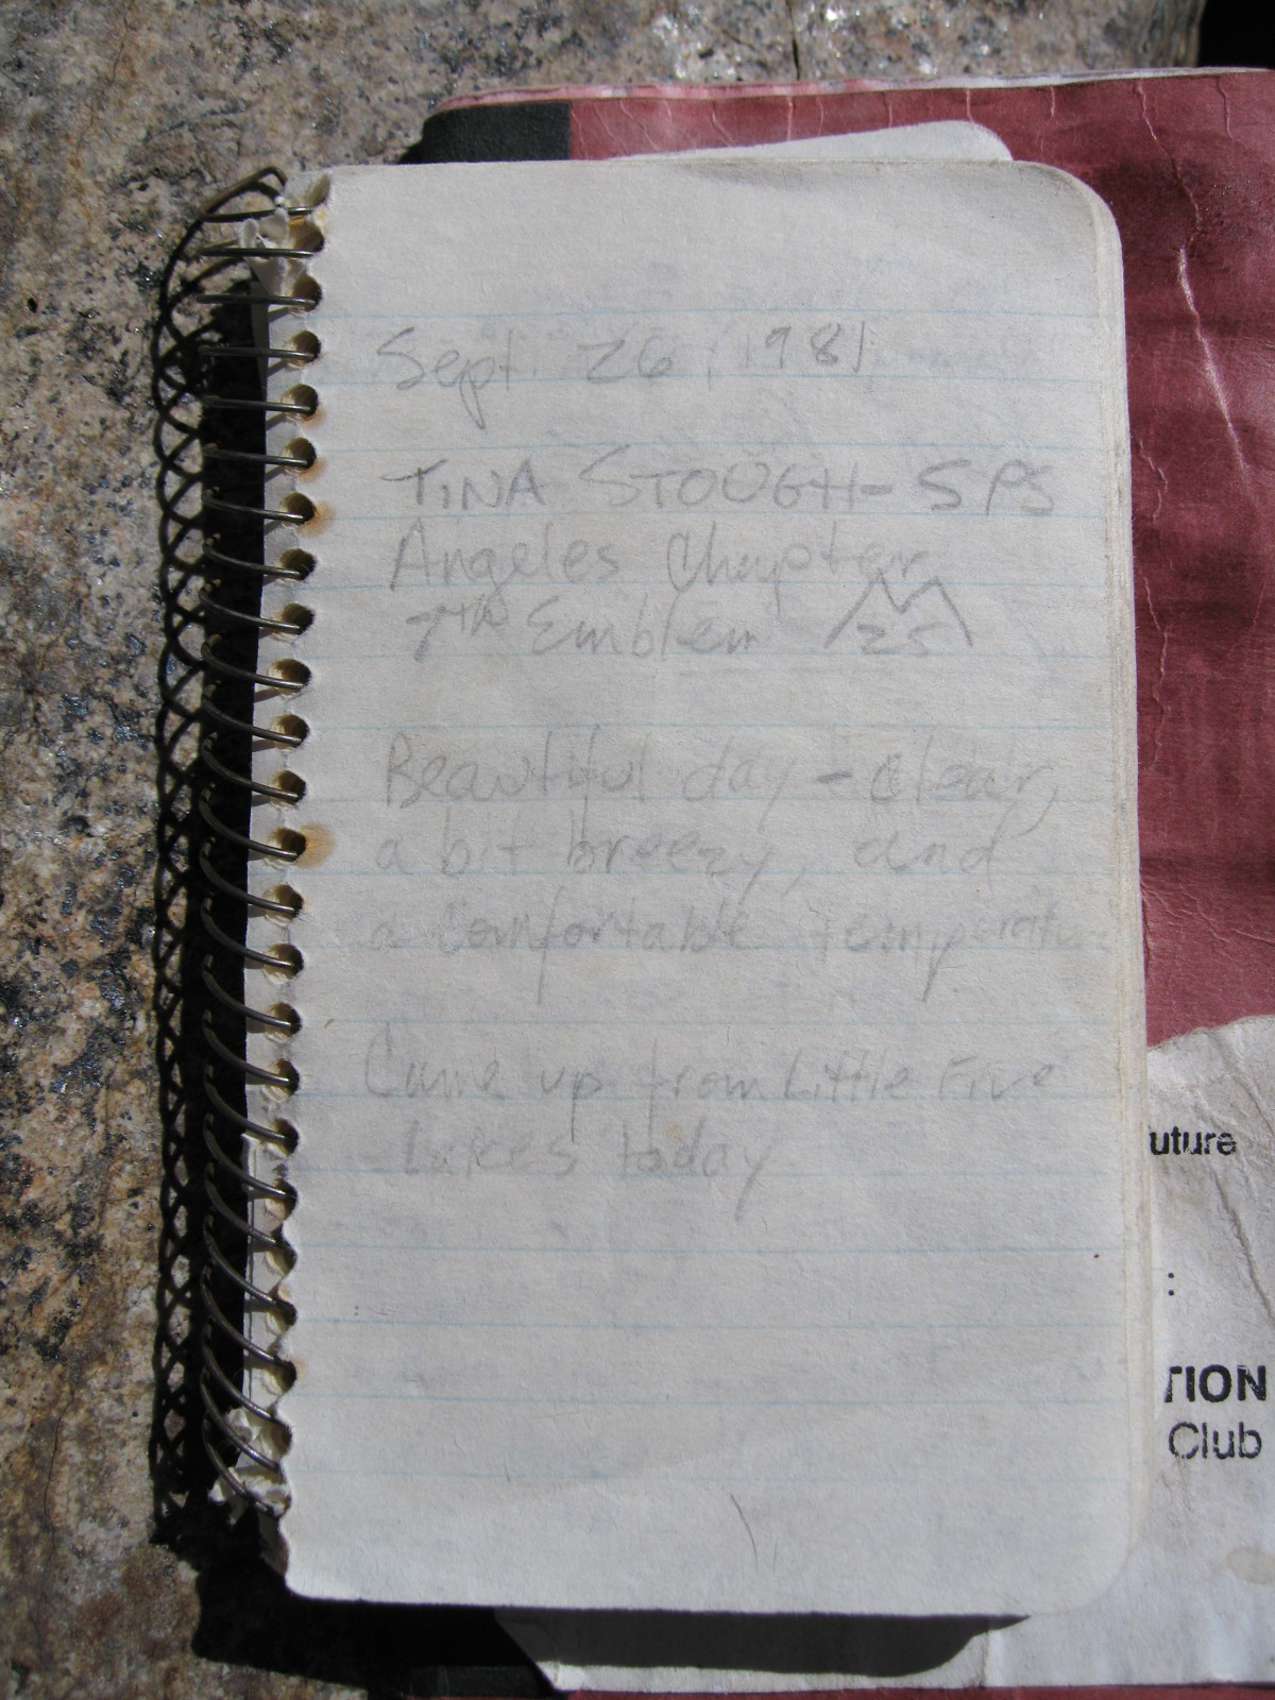 Sept. 26, 1981
TINA STOUGH- SPS
Angeles Chapter
7TH Emblem 25
Beautiful day - clear,
a bit breezy, and
a comfortable temperature.
Came up from Little Five
Lakes today
uture
:
TION
Club